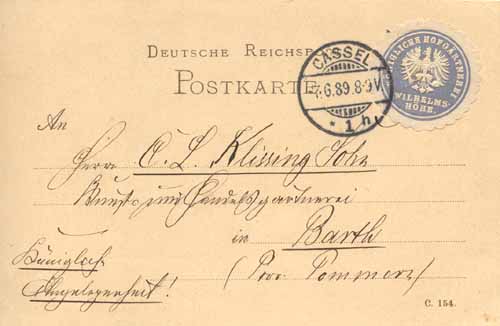 DEUTSCHE REICHSP
POSTKARTE
CASSEL
7.6.89.8-9V.
* 1 h.
KÖNIGLICHE HOFGÄRTNEREI
WILHELMS-
HÖHE.
An
Herrn C. L. Klissing Sohn
Kunst- und Handelsgärtnerei
in Barth
(Prov. Pommern)
Königlich
Angelegenheit!
C. 154.